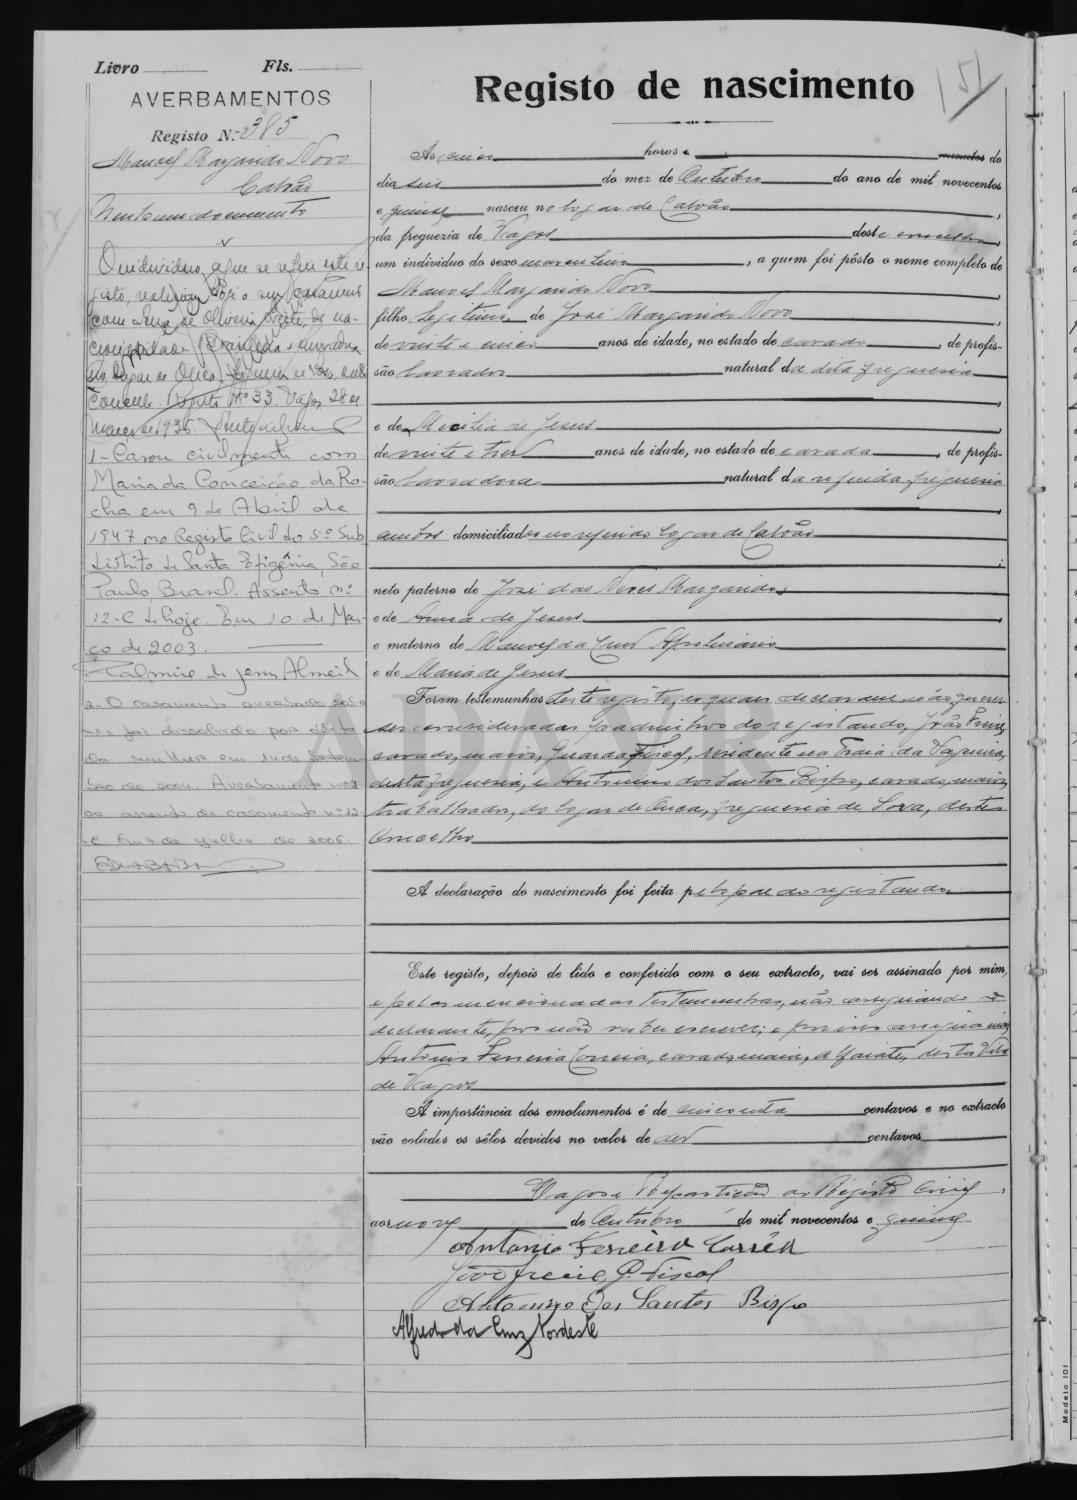 Livro Fls.
AVERBAMENTOS
Registo N.º 385
Manoel Margarido Novo
Calvão
Nenhum documento
O individuo a que se refere este re-
gisto, realizou hoje o seu casamento
com de Oliveira de na-
cionalidade Brasileira e moradora
no lugar de Ouca, freguesia de deste
Concelho. Registo Nº 33. Vagos, 28 de
Março de 1935
1 - Casou civilmente com
Maria da Conceição da Ro-
cha em 9 de Abril de
1947 no Registo Civil do 5º Sub
distrito de Santa Efigênia, São
Paulo Brasil. Assento nº
12-C de hoje. Em 10 de Mar-
ço de 2003.
Palmira de Jesus Almeida
2 - O casamento averbado sob o
nº 1 foi dissolvido por óbito
da mulher em de Setem-
bro de 2004. Averbamento nº 1
ao assento de casamento nº 12-
C Em 3 de Julho de 2006
Registo de nascimento
151
Ás cinco horas e minutos do
dia seis do mez de Outubro do ano de mil novecentos
e quinze nasceu no logar de Calvão,
da freguezia de Vagos deste concelho,
um individuo do sexo masculino, a quem foi pôsto o nome completo de
Manoel Margarido Novo,
filho legitimo de José Margarido Novo,
de vinte e cinco anos de idade, no estado de casado, de profis-
são lavrador natural da dita freguesia
e de Micilia de Jesus
de vinte e tres anos de idade, no estado de casada, de profis-
são lavradora natural da referida freguesia
ambos domiciliados no referido logar de Calvão
neto paterno de José das Neves Margarido,
e de Anna de Jesus,
e materno de Manoel da Cruz Apolinario
e de Maria de Jesus
Foram testemunhas deste registo, as quaes declararam não querer
ser consideradas padrinhos do registando, João Freire,
casado, maior, Guarda Fiscal, residente na Praia da Vagueira,
desta freguesia, e Antonino dos Santos Bispo, casado, maior,
trabalhador, do logar de Ouca, freguesia de Soza, deste
Concelho
A declaração do nascimento foi feita pelo pae do registando
Este registo, depois de lido e conferido com o seu extracto, vai ser assinado por mim,
e pelas mencionadas testemunhas, não assignando o
declarante, por não saber escrever; e por isso assigna
Antonio Ferreira Correia, casado, maior, alfaiate, desta Vila
de Vagos
A importância dos emolumentos é de cincoenta centavos e no extracto
vão colados os sêlos devidos no valor de dez centavos
Vagos e Repartição do Registo Civil,
aos nove de Outubro de mil novecentos e quinze
Antonio Ferreira Corrêa
João Freire, G. Fiscal
Antonino Dos Santos Bispo
Alfredo da Cruz Nordeste
Modelo 101